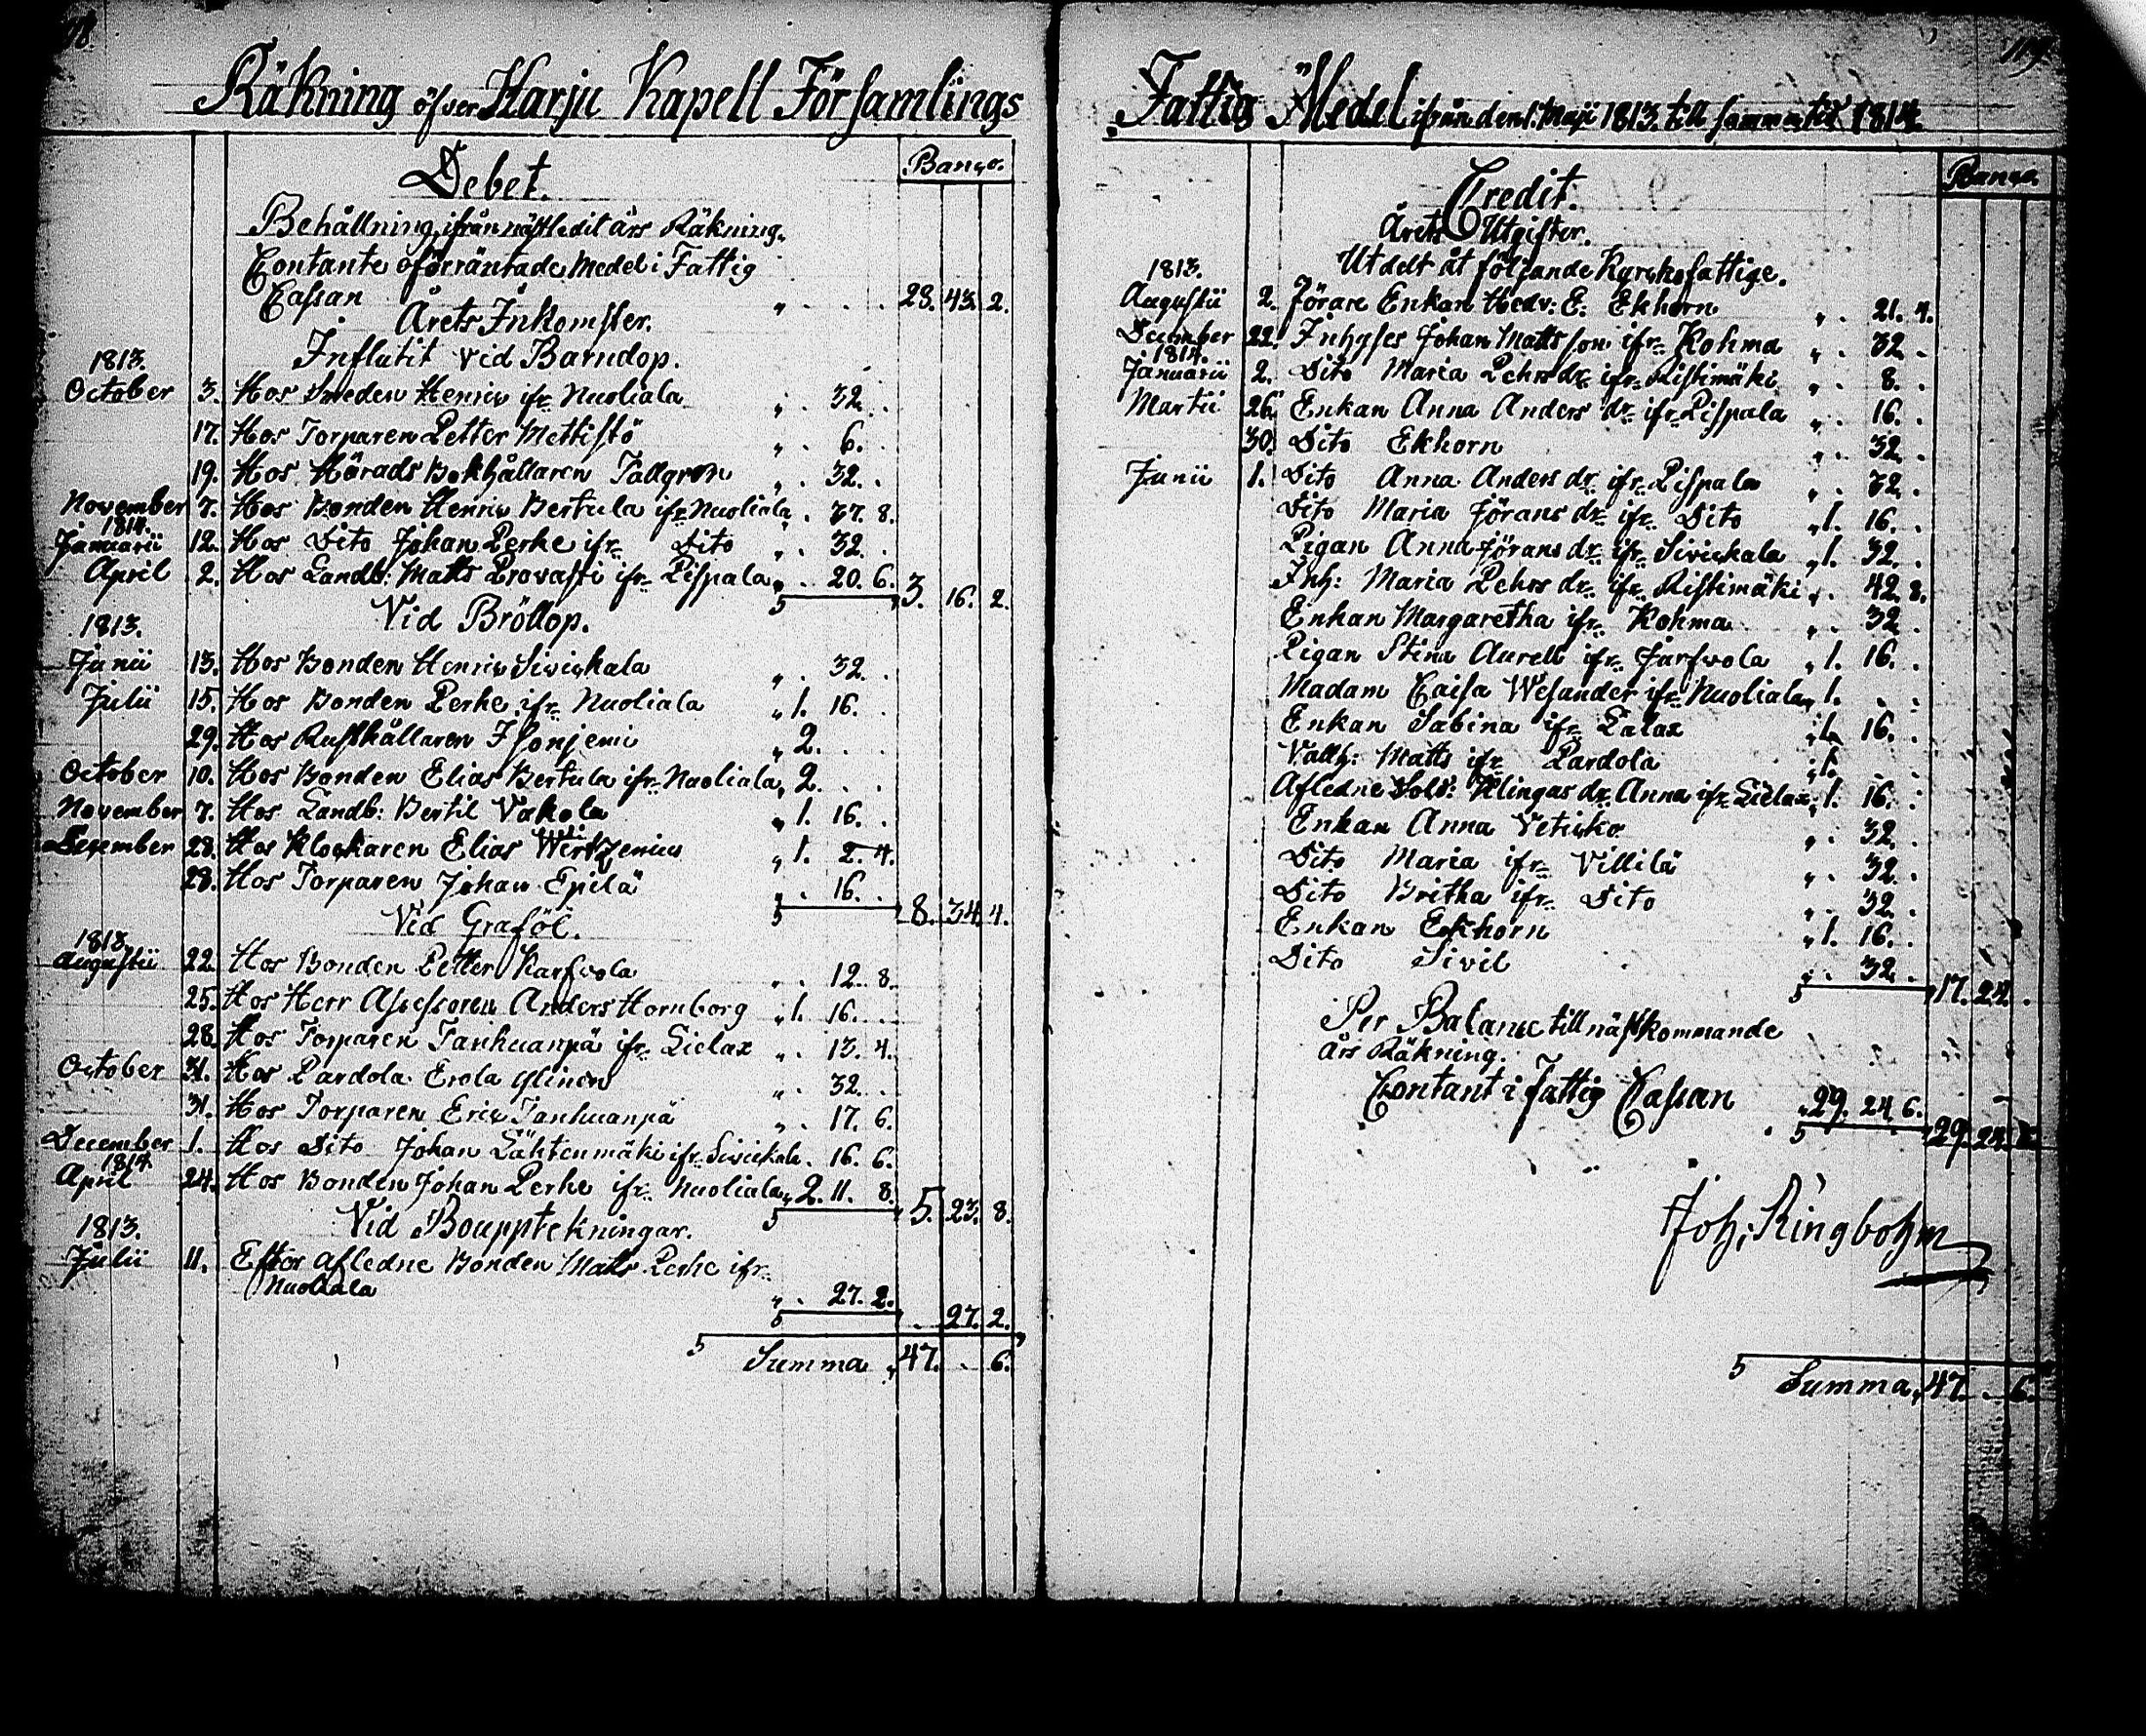 Räkning öfver Harju Kapell Församlings
Debet.
Banco.
Behållning ifrån nästledit års Räkning.
Contante oförräntade Medel i Fattig
Cassan " . . . 28. 43. 2.
Årets Inkomster.
Influtit vid Barndop.
1813.
October 3. Hos Smeden Henric ifr. Nuoliala " . 32. .
17. Hos Torparen Petter Mettistö " . 6. .
19. Hos Härads Bokhållaren Tallgren " . 32. .
November 7. Hos Bonden Henric Bertula ifr. Nuoliala " . 37. 8.
1814.
Januarii 12. Hos Dito Johan Perke ifr. Dito " . 32. .
April 2. Hos Landb: Matts Provasti ifr. Pispala " . 20. 6. 3. 16. 2.
Vid Bröllop.
1813.
Junii 13. Hos Bonden Henric Siwickala " . 32. .
Julii 15. Hos Bonden Perke ifr. Nuoliala " 1. 16. .
29. Hos Rusthållaren Isonjemi " 2. . .
October 10. Hos Bonden Elias Bertula ifr. Nuoliala " 2. . .
November 7. Hos Landb: Bertil Vakola " 1. 16. .
December 28. Hos Klockaren Elias Wirtzenius " 1. 2. 4.
28. Hos Torparen Johan Epilä " . 16. . 8. 34. 4.
Vid Graföl.
1813.
Augustii 22. Hos Bonden Petter Karfvola " . 12. 8.
25. Hos Herr Assessoren Anders Hornborg " 1. 16. .
28. Hos Torparen Tanhuanpä ifr. Lielax " . 13. 4.
October 31. Hos Pardola Erola Ylinen " . 32. .
31. Hos Torparen Eric Tanhuanpä " . 17. 6.
December 1. Hos Dito Johan Lähtenmäki ifr. Siwickala . 16. 6.
1814.
April 24. Hos Bonden Johan Perke ifr. Nuoliala " 2. 11. 8. 5. 23. 8.
Vid Bouppteckningar.
1813.
Julii 11. Efter afledne Bonden Matts Perke ifr.
Nuoliala " . 27. 2. . 27. 2.
Summa " 47. . 6.
119.
Fattig Medel ifrån den 1. Maji 1813. till samma tid 1814.
Credit.
Banco.
Årets Utgifter.
Utdelt åt följande Kyrckofattige.
1813.
Augustii 2. Förare Enkan Hedv: E: Ekhorn " . 21. 4.
December 22. Inhyses Johan Mattsson ifr. Kohma " . 32. .
1814.
Januarii 2. Dito Maria Pehrs dr. ifr. Ristimäki " . 8. .
Martii 26. Enkan Anna Anders dr. ifr. Pispala " . 16. .
30. Dito Ekhorn " . 32. .
Junii 1. Dito Anna Anders dr. ifr. Pispala " . 32. .
Dito Maria Jörans dr. ifr. Dito " 1. 16. .
Pigan Anna Jörans dr. ifr. Siwickala " 1. 32. .
Inh: Maria Pehrs dr. ifr. Ristimäki " . 42. 8.
Enkan Margaretha ifr. Kohma " . 32. .
Pigan Stina Aurell ifr. Järfvola " 1. 16. .
Madam Caisa Wesander ifr. Nuoliala " 1. . .
Enkan Sabina ifr. Lalax " 1. 16. .
Vallh: Matts ifr. Pardola " 1. . .
Afledne Sold: Klingas dr. Anna ifr. Lielax " 1. 16. .
Enkan Anna Veticko " . 32. .
Dito Maria ifr. Villilä " . 32. .
Dito Britha ifr. Dito " . 32. .
Enkan Ekhorn " 1. 16. .
Dito Sivil " . 32. . 17. 24. .
Per Balance till nästkommande
års Räkning.
Contant i Fattig Cassan " 29. 24. 6. 29. 24. 6.
Joh. Ringbohm
Summa " 47. . 6.